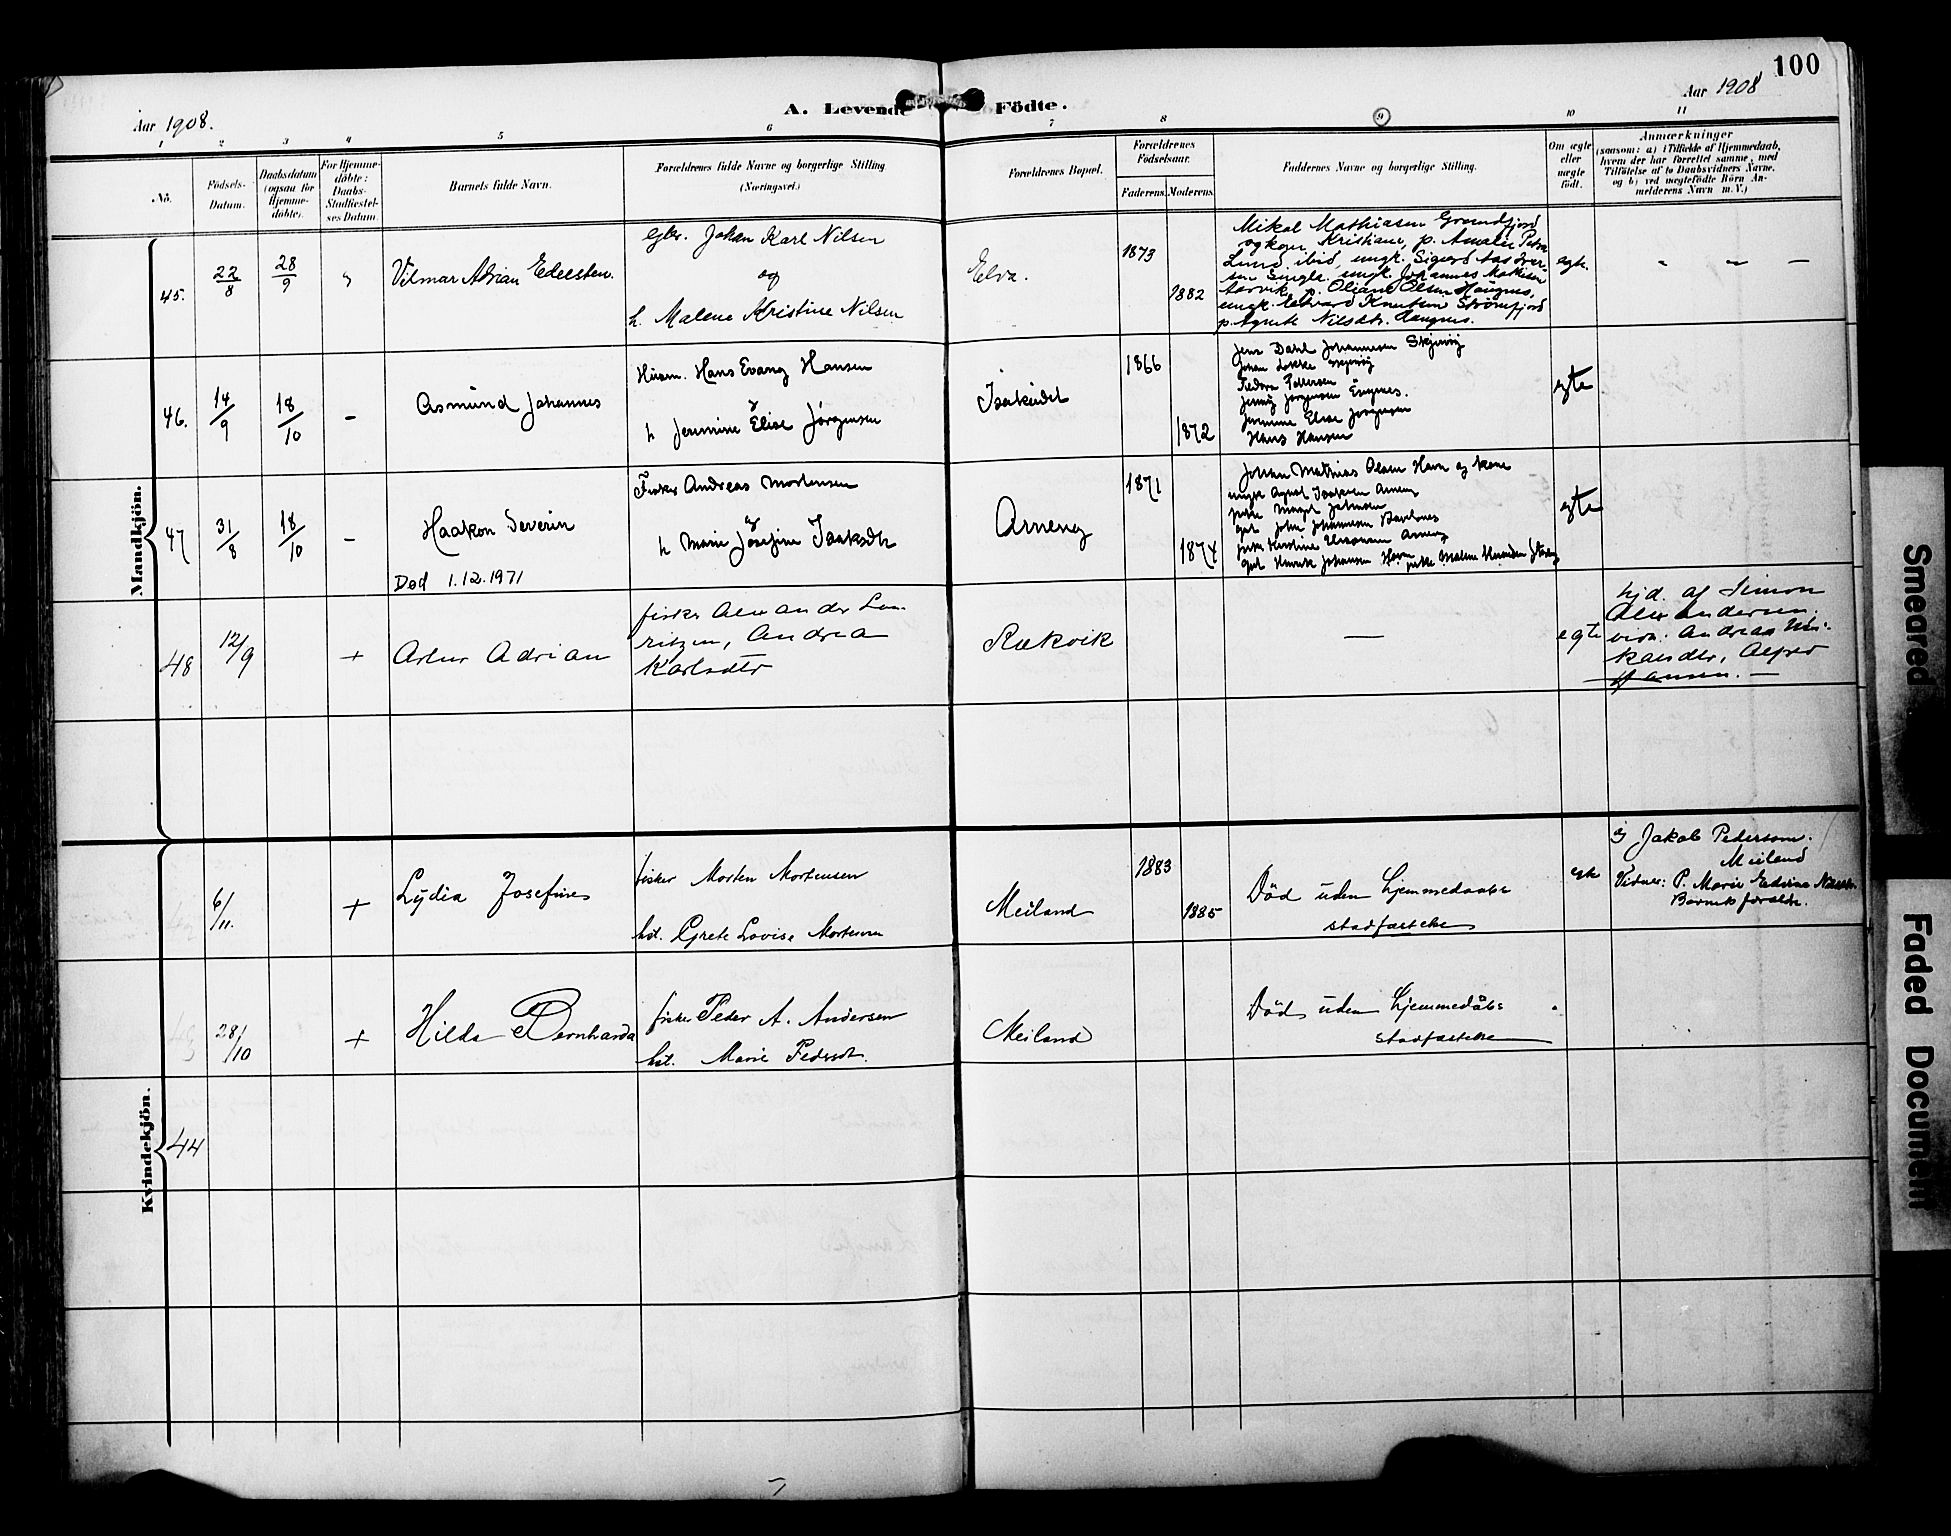 100
Aar 1908.
A. Levende Födte.
Aar 1908
1 2 3 4 5 6 7 8 9 10 11
No.
Födsels-
Datum.
Daabsdatum
(ogsaa for
Hjemme-
döbte).
For Hjemme-
döbte:
Daabs-
Stadfæstel-
ses Datum.
Barnets fulde Navn.
Forældrenes fulde Navne og borgerlige Stilling
(Næringsvei.)
Forældrenes Bopæl.
Forældrenes
Födselsaar.
Faderens. Moderens.
Faddernes Navne og borgerlige Stilling.
Om ægte
eller
uægte
födt.
Anmærkninger
(saasom: a) i Tilfælde af Hjemmedaab,
hvem der har forrettet samme, med
Tilföielse af to Daabsvidners Navne,
og b) ved uægtefödte Börn An-
melderens Navn m. V.)
Mandkjön.
45.
22/8
28/9
Vilmar Adrian Edeesten.
Johan Karl Nilsen
og
h. Malene Kristine Nilsen
Elva.
1873
1882
Mikal Mathiasen Grundfjord
og kone Kristiane, p. Amalie Petra
Lund ibid, ungk. Sigurd
ungk. Johannes
p. Oliane Olsen Haugnes,
ungk. Edvard Knutsen Strömfjord
p. Agnete Nilsdtr. Haugnes.
egte.
" " —
46.
14/9
18/10
-
Asmund Johannes
Husm. Hans Evang Hansen
og
h Jenmine Elise Jørgensen
Isakeidet
1866
1872
Jens Dahl Johannesen Skjervøy
Johan Løkke Skjervøy
Pedersen
Jenny Jørgensen
Jenmine Elise Jørgensen
Hans Hansen
egte
47
31/8
18/10
-
Haakon Severin
Død 1.12.1971
Fisker Andreas Mortensen
og
h Marie Josefine Isaksdtr
Arneng
1871
1874
Johan Mathias Olsen Havn og kone
ungk Isaksen Arneng
pike Margit Johnsen
gut John Johannesen
pike Kirstine Arneng
gut Henrik Johansen Havn pike Malene
egte
48
12/9
+
Artur Adrian
fisker Alexander Lau
ritzen, Andrea
Karlsdtr
Rækvik
—
egte
hjd. af Simon
Alexandersen.
vidn: Andreas
Alfred
Hansen. —
Kvindekjön.
6/11.
+
Lydia Josefine
fisker Morten Mortensen
hst. Grete Lovise Mortensen
Meiland
1883
1885
Död uden hjemmedaabs
stadfæstelse
egte
Jakob Pedersen.
Meiland
Vidner: P. Marie Edvina
Barnets forældre.
28/10
+
Hilda Bernharda
fisker Peder A. Andersen
hst. Marie Pedersdt.
Meiland
Död uden hjemmedåbs
stadfæstelse
44
Smeared
Faded Document